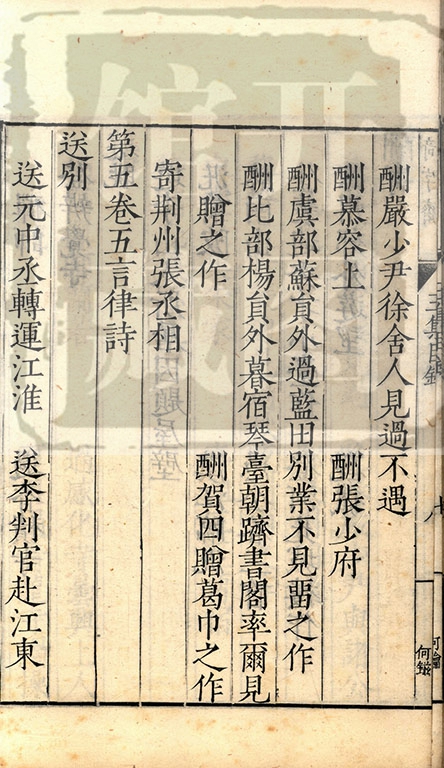 酬嚴少尹徐舍人見過不遇
酬慕容上　酬張少府
酬虞部蘇貟外過藍田別業不見畱之作
酬比部楊貟外暮宿琴臺朝躋書閣率爾見
贈之作　酬賀四贈葛巾之作
寄荆州張丞相
第五卷五言律詩
送別
送元中丞轉運江淮　送李判官赴江東
何鎡